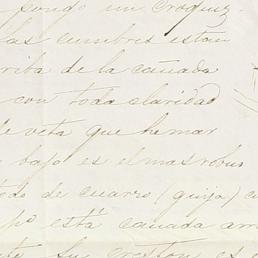 pongo un croquiz.
las cumbres estan
rriba de la cañada
con toda claridad
de veta que hemar
bajo es el mas robus
do de cuarzo (guija) c
pº está cañada arr
su creston es